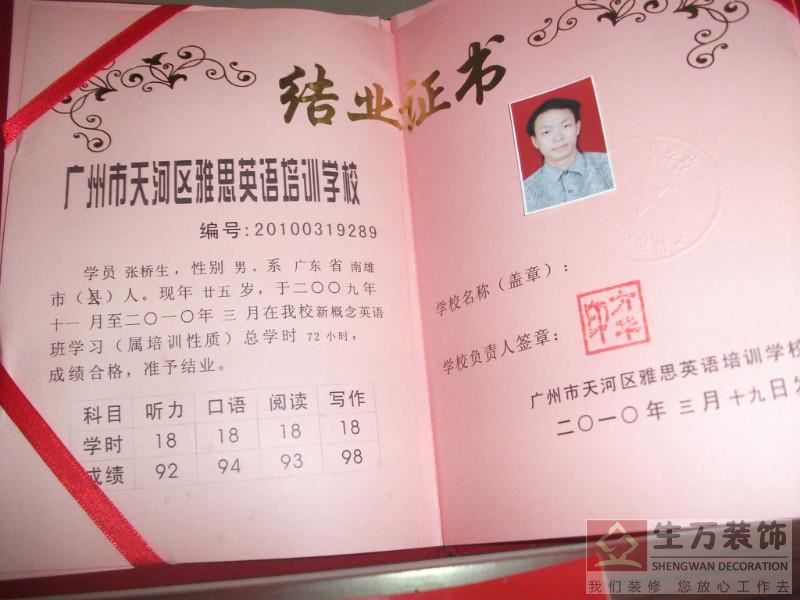 结业证书
广州市天河区雅思英语培训学校
编号:20100319289
学员 张桥生，性别 男。系 广东 省 南雄
市（县）人。现年 廿五 岁，于二〇〇九年
十一 月至二〇一〇年 三 月在我校新概念英语
班学习（属培训性质）总学时 72小时，
成绩合格，准予结业。
科目 听力 口语 阅读 写作
学时 18 18 18 18
成绩 92 94 93 98
学校名称（盖章）：
学校负责人签章：
广州市天河区雅思英语培训学校
二〇一〇年 三 月 十九日
生万装饰
SHENGWAN DECORATION
我们装修 您放心工作去